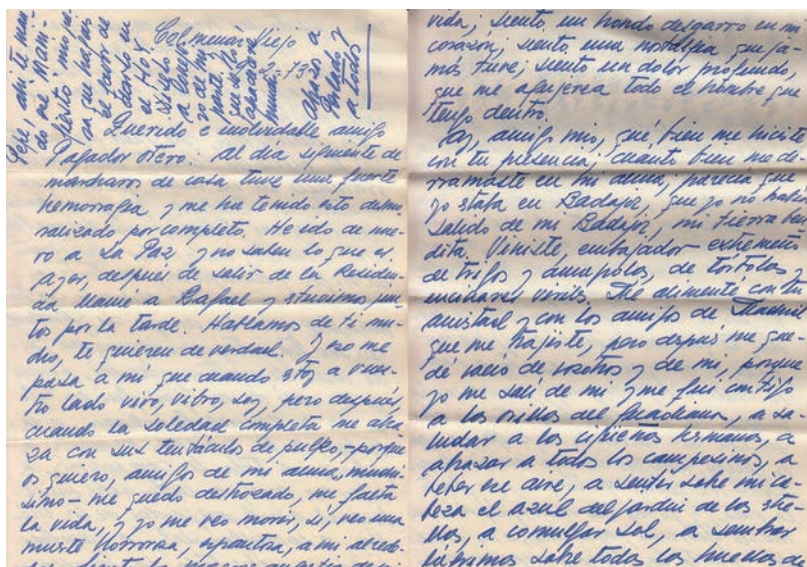 Pepe, ahí te man-
do
Colmenar Viejo
2-73
abrazos a
todos
Querido e inolvidable amigo
Pagador Otero: Al día siguiente de
marcharos de casa tuve una fuerte
hemorragia y me ha tenido esto desmo-
ralizado por completo. He ido de nue-
vo a La Paz y no saben lo que es.
Ayer, después de salir de la Residen-
cia llamé a Rafael y estuvimos jun-
tos por la tarde. Hablamos de ti mu-
cho, te quieren de verdad. Y eso me
pasa a mí que cuando estoy a vues-
tro lado vivo, vibro, soy, pero después
cuando la soledad completa me abra-
za con sus tentáculos de pulpo, -porque
os quiero, amigos de mi alma, muchí-
simo- me quedo destrozado, me falta
la vida, y yo me veo morir, sí, veo una
muerte horrorosa, espantosa, a mi alrede-
vida, siento un hondo desgarro en mi
corazón; siento una nostalgia que ja-
más tuve; siento un dolor profundo,
que me agujerea todo el hombre que
tengo dentro.
Ay, amigo mío, qué bien me hiciste
con tu presencia, cuanto bien me de-
rramaste en mi alma, parecía que
yo estaba en Badajoz, que yo no había
salido de mi Badajoz, mi tierra ben-
dita. Viniste, embajador extremeño
de trigos y amapolas, de tórtolas y
encinares viriles. Me alimenté con tu
amistad y con los amigos de
que me trajiste, pero después me que-
dé vacío de vosotros y de mí, porque
yo me salí de mí y me fui contigo
a las orillas del Guadiana, a sa-
ludar a los hermanos, a
abrazar a todos los campesinos, a
beber ese aire, a sentir sobre mi ca-
beza el azul del jardín de las estre-
llas, a comulgar sol, a sembrar
lágrimas sobre todos los huesos de